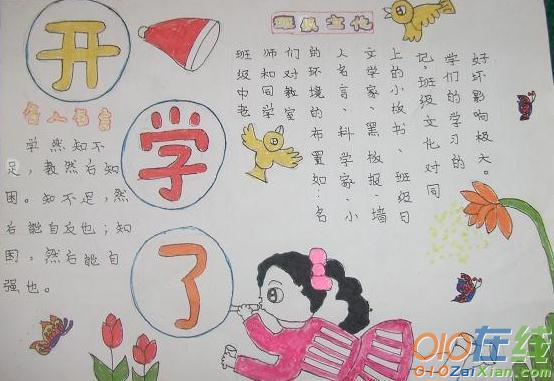 开
学
了
名人名言
学然知不
足，教然后知
困。知不足，然
后能自反也；知
困，然后能自
强也。
班级文化
班级中老
师和同学
们对教室
的环境的布置如：名
人名言、科学家、小
文学家、黑板报、墙
上的小板书、班级日
记。班级文化对同
学们的学习的
好坏影响极大。
010在线
010ZaiXian.com